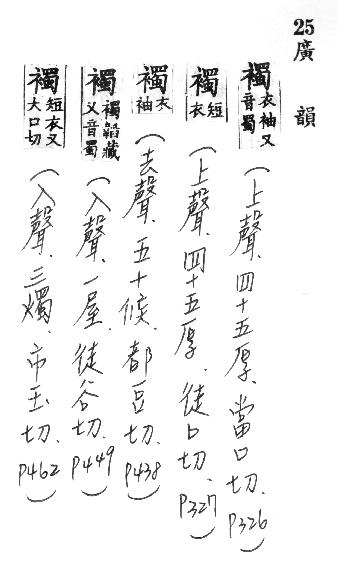 25廣韻
襡衣袖又音蜀(上聲.四十五厚.當口切.P326)
襡短衣(上聲.四十五厚.徒口切.P327)
襡衣袖(去聲.五十候.都豆切.P438)
襡襡藏又音蜀(入聲.一屋.徒谷切.P449)
襡短衣又大口切(入聲.三燭.市玉切.P462)